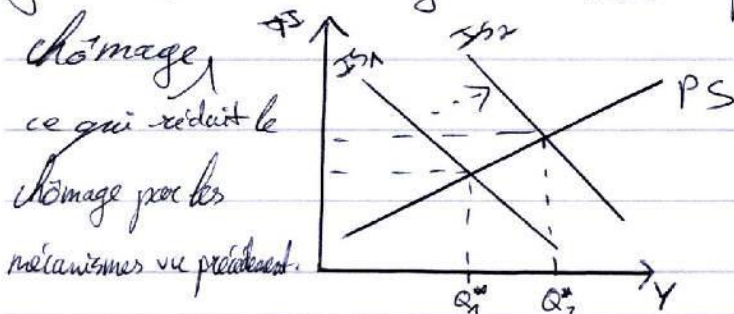 chômage,
ce qui réduit le
chômage par les
mécanismes vu précédement.
IS1
IS2
PS
Q1*
Q2*
Y